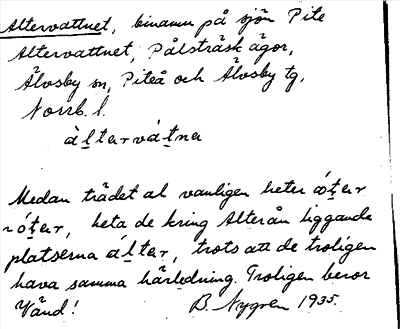 Altervattnet, binamn på sjön Pite
Altervattnet, Pålsträsk ägor,
Älvsby sn, Piteå och Älvsby tg,
Norrb. l.
àl̲tərvát̲nə
Medan trädet al vanligen heter
heta de kring Alterån liggande
platserna ál̲tər, trots att de troligen
hava samma härledning. Troligen beror
Vänd! B. Nygren 1935.